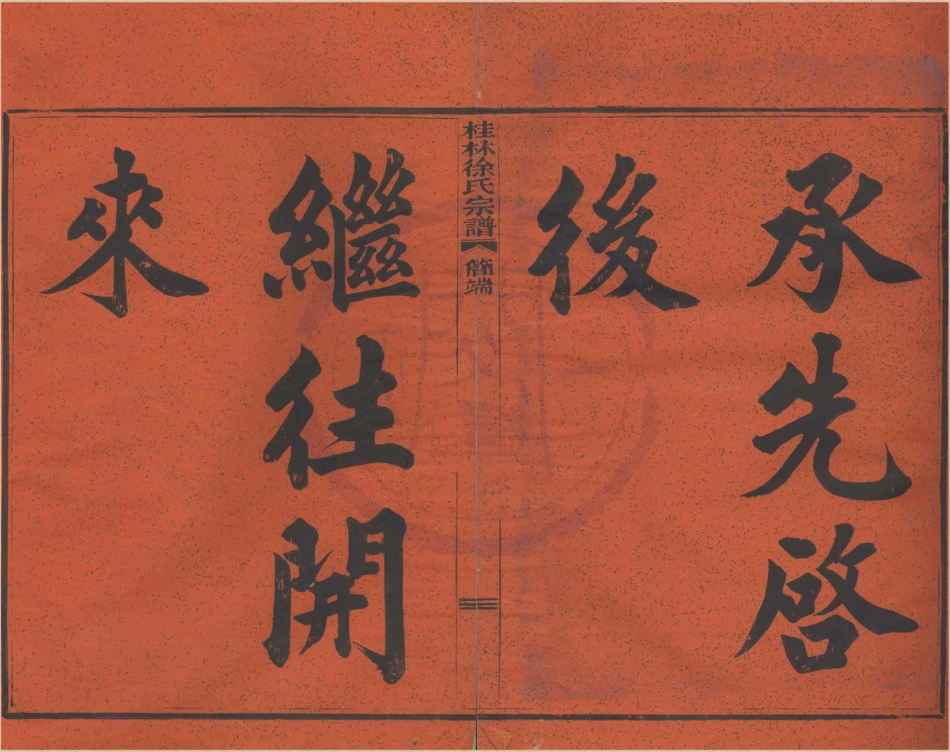 承先啓
後
桂林徐氏宗譜
簡端
繼往開
來